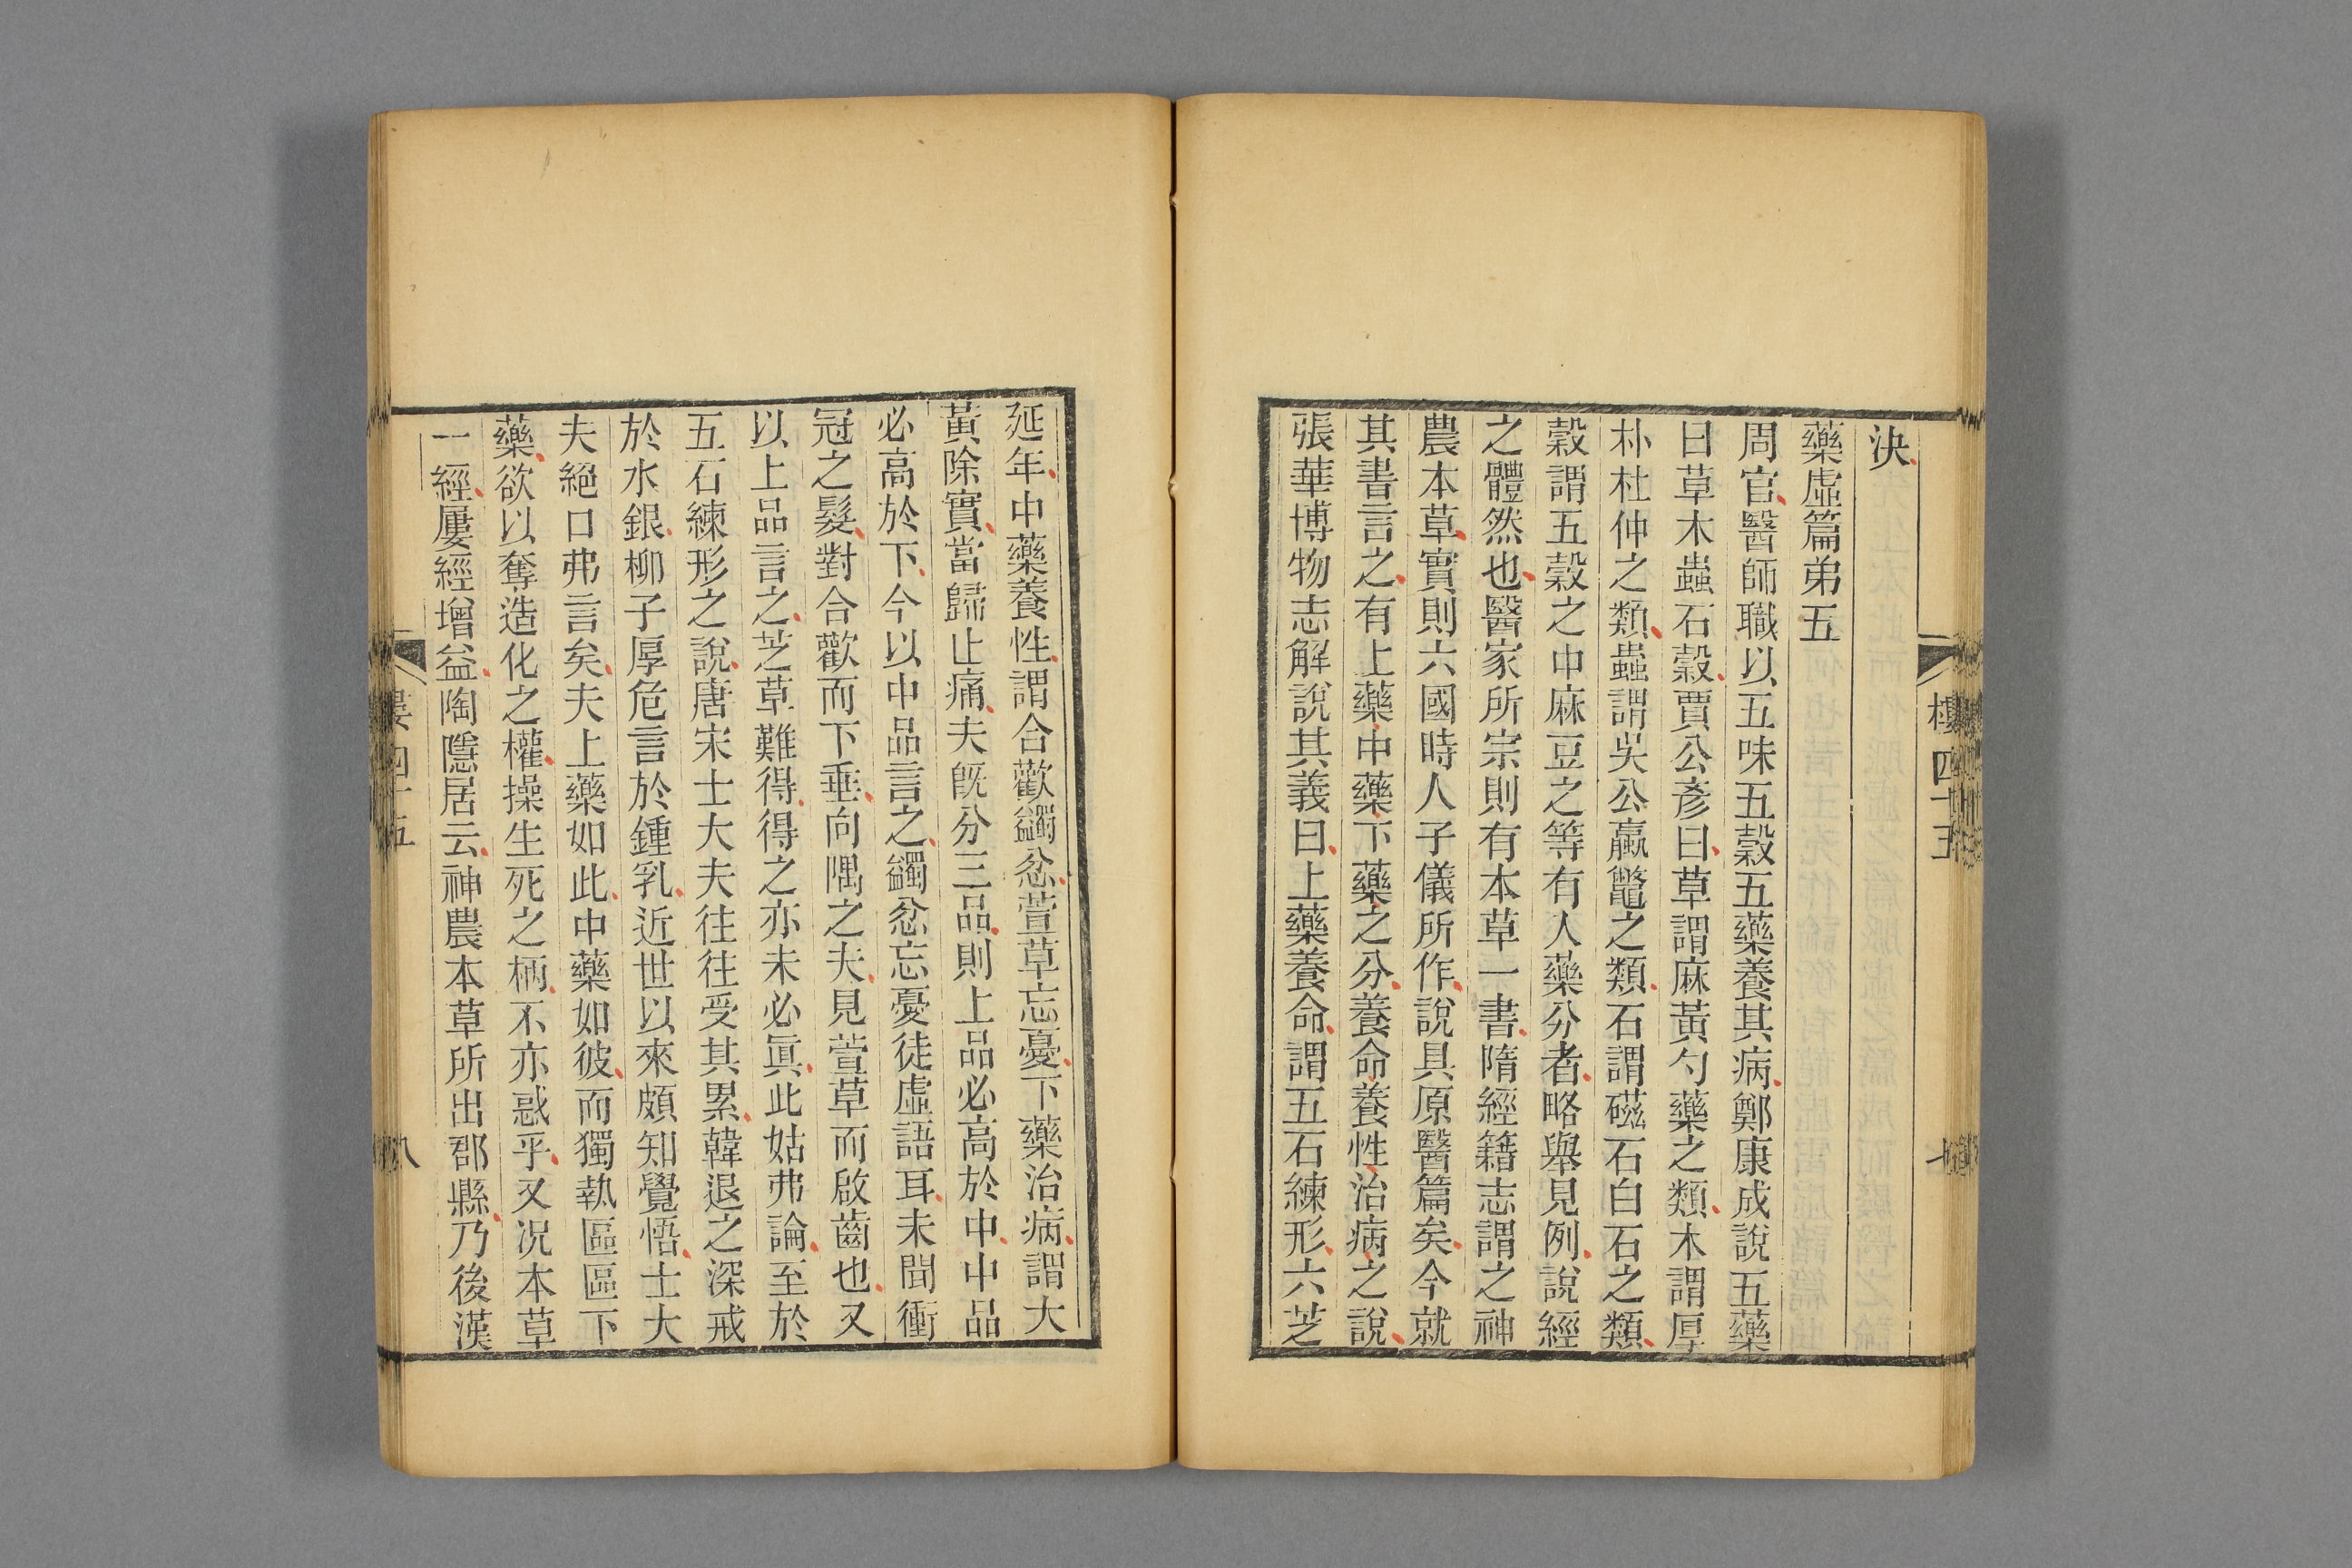 決
藥虛篇弟五
周官醫師職以五味五穀五藥養其病鄭康成說五藥
曰草木蟲石穀賈公彥曰草謂麻黃勺藥之類木謂厚
朴杜仲之類蟲謂吳公蠃鼈之類石謂磁石白石之類
穀謂五穀之中麻豆之等有人藥分者略舉見例說經
之體然也醫家所宗則有本草一書隋經籍志謂之神
農本草實則六國時人子儀所作說具原醫篇矣今就
其書言之有上藥中藥下藥之分養命養性治病之說
張華博物志解說其義曰上藥養命謂五石練形六芝
延年中藥養性謂合歡蠲忿萱草忘憂下藥治病謂大
黃除實當歸止痛夫既分三品則上品必高於中中品
必高於下今以中品言之蠲忿忘憂徒虛語耳未聞衝
冠之髮對合歡而下垂向隅之夫見萱草而啟齒也又
以上品言之芝草難得得之亦未必眞此姑弗論至於
五石練形之說唐宋士大夫往往受其累韓退之深戒
於水銀柳子厚危言於鍾乳近世以來頗知覺悟士大
夫絕口弗言矣夫上藥如此中藥如彼而獨執區區下
藥欲以奪造化之權操生死之柄不亦惑乎又況本草
一經屢經增益陶隱居云神農本草所出郡縣乃後漢
樓四十五
八